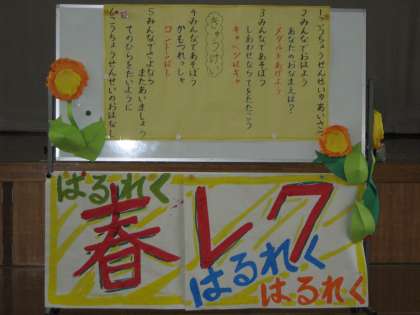 1.こうちょうせんせいのあいさつ
2.みんなでおはよう
あなたのおなまえは?
メダルをあげよう
3.みんなであそぼう
しあわせならてをたたこう
キャベツはキャ
きゅうけい
4.みんなであそぼう
かもつれっしゃ
ロンドンばし
5.みんなでさよなら
またあいましょう
てのひらをたいように
6.こうちょうせんせいのおはなし
はるれく
春レク
はるれく
はるれく